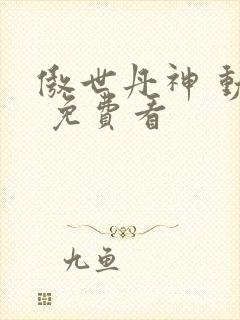 傲世丹神 動
免費看
九魚